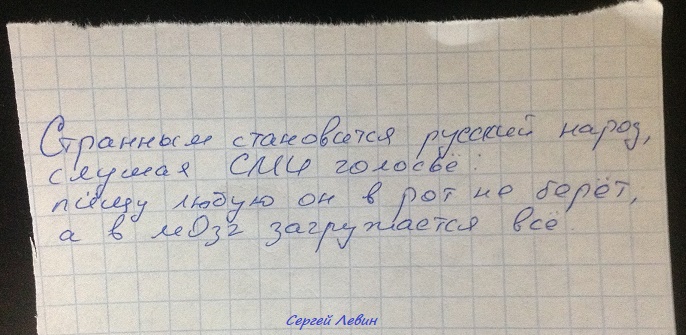 Странным становится русский народ,
слушая СМИ голосьё:
пищу любую он в рот не берёт,
а в мОзг загружается всё.
Сергей Левин